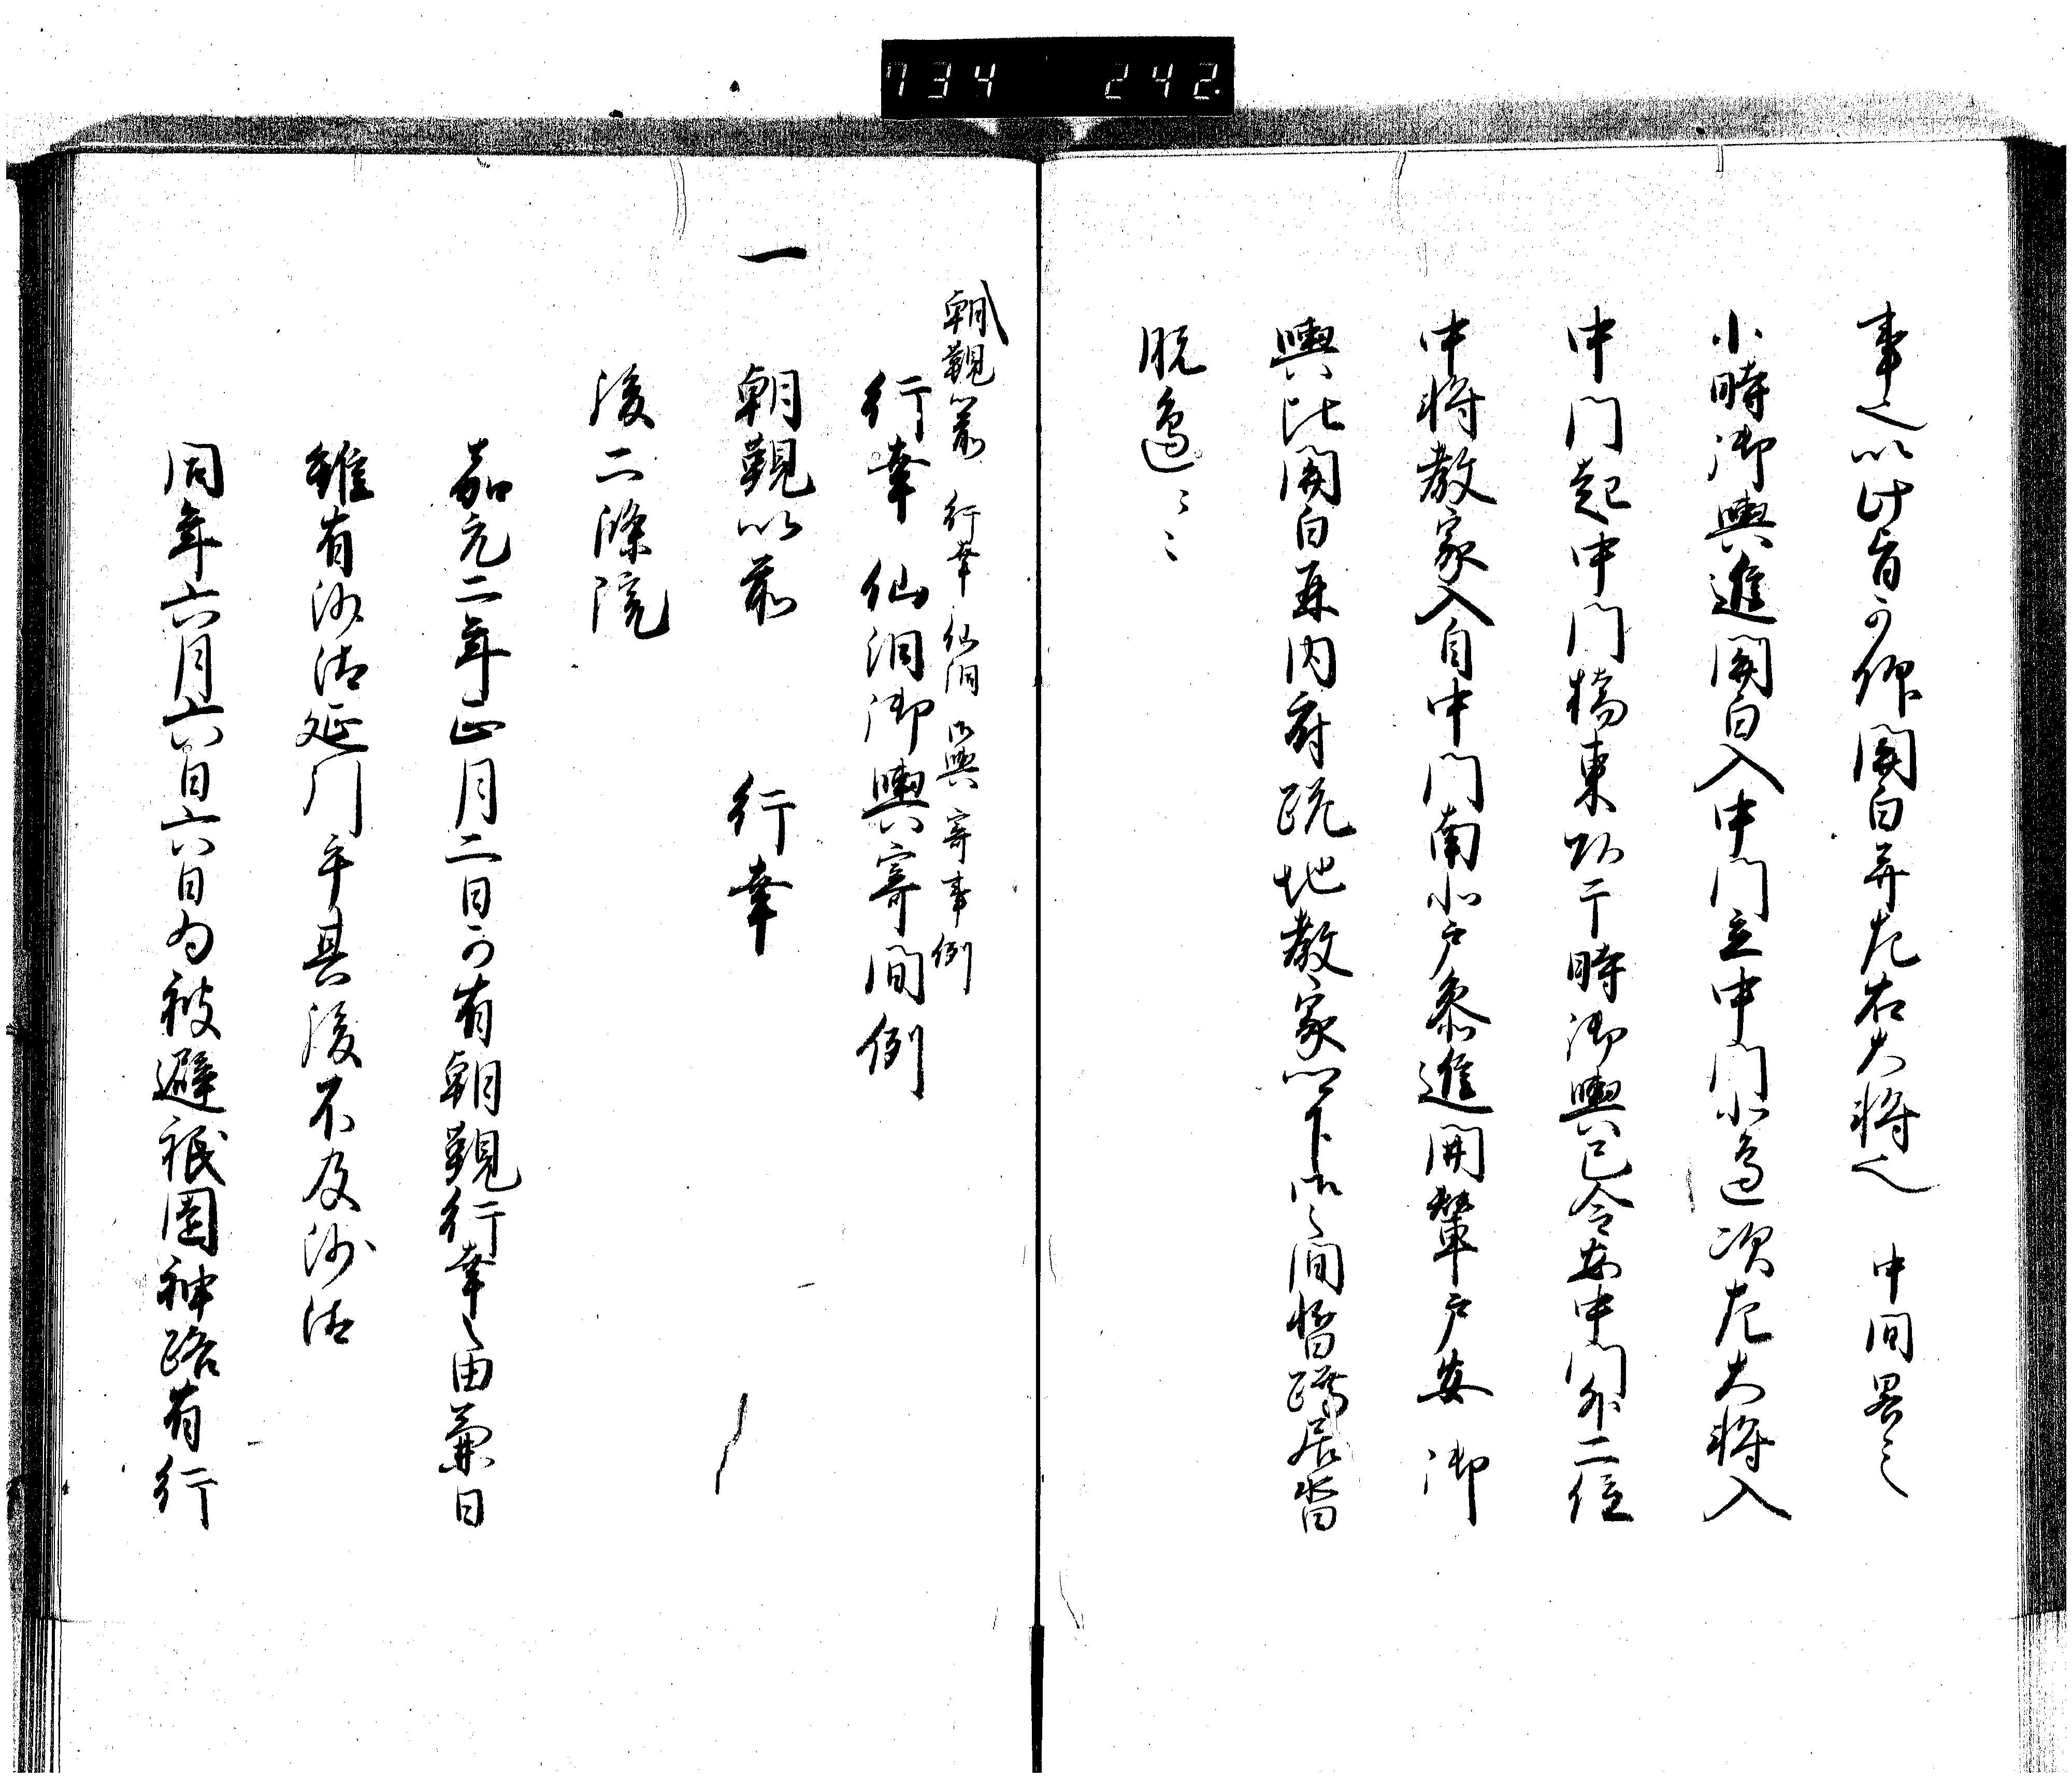 734 242
事也以此旨可仰関白并左右大将也 中間畧之
小時御輿進関白入中門立中門北邊次左大将入
中門起中門橋東頭于時御輿已令安中門外二位
中将教家入自中門南北戸参進開輦戸安 御
輿比関白在内府跪地教家以下次々間暫蹲居沓
脱邊云々
朝覲以前 行幸 仙洞 御輿 寄事例
行幸 仙洞御輿寄間例
一 朝覲以前 行幸
後二條院
嘉元二年正月二日可有朝覲行幸之由兼日
雖有沙汰延引于其後不及沙汰
同年六月六日六日為被避祇園神路有行